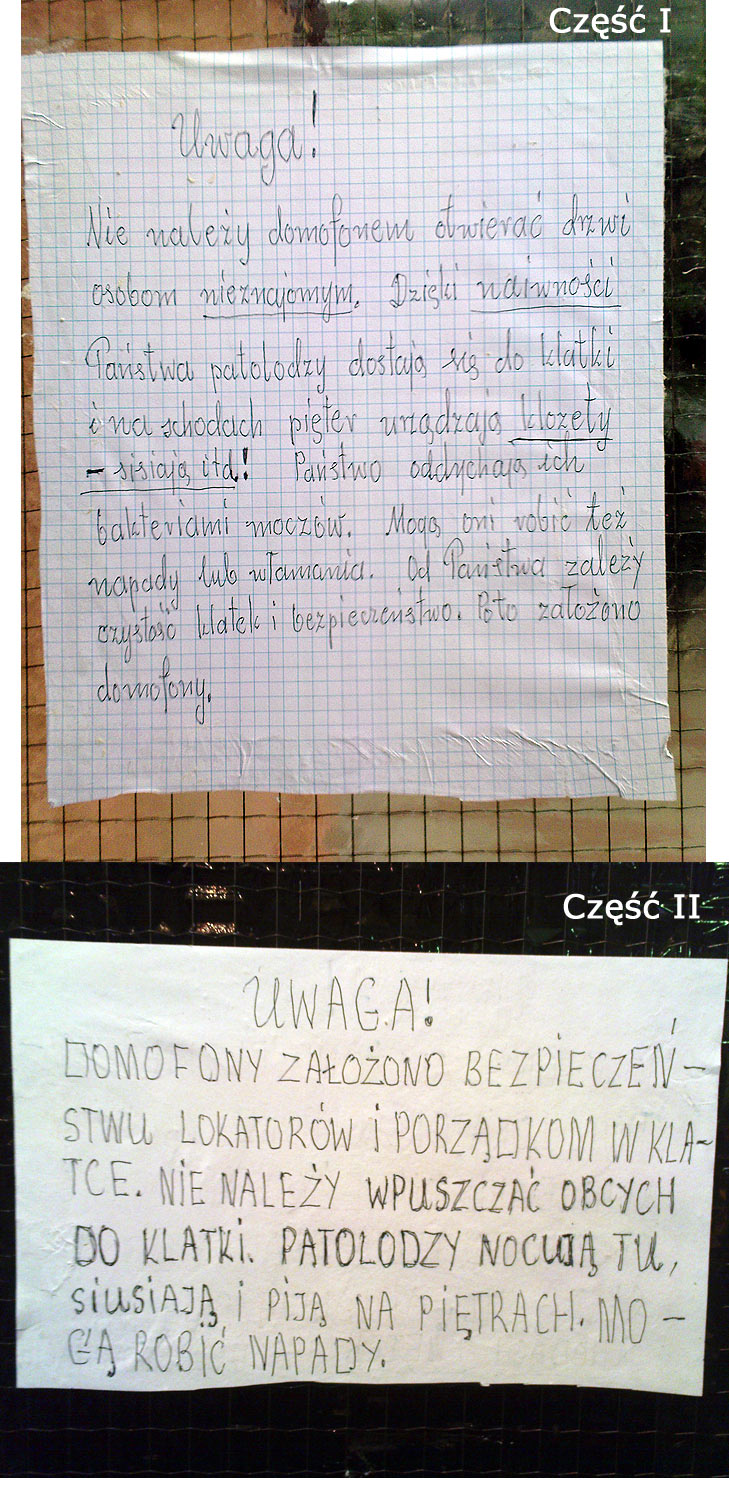 Część I
Uwaga!
Nie należy domofonem otwierać drzwi
osobom nieznajomym. Dzięki naiwności
Państwa patolodzy dostają się do klatki
i na schodach pięter urządzają klozety
- sisiają itd! Państwo oddychają ich
bakteriami moczów. Mogą oni robić też
napady lub włamania. Od Państwa zależy
czystość klatek i bezpieczeństwo. Po to założono
domofony.
Część II
UWAGA!
DOMOFONY ZAŁOŻONO BEZPIECZEŃ-
STWU LOKATORÓW i PORZĄDKOM W KLA-
TCE. NiE NALEŻY WPUSZCZAĆ OBCYCH
DO KLATKi. PATOLODZY NOCUJĄ TU,
SiUSiAJĄ i PiJĄ NA PiĘTRACH. MO-
GĄ ROBIĆ NAPADY.